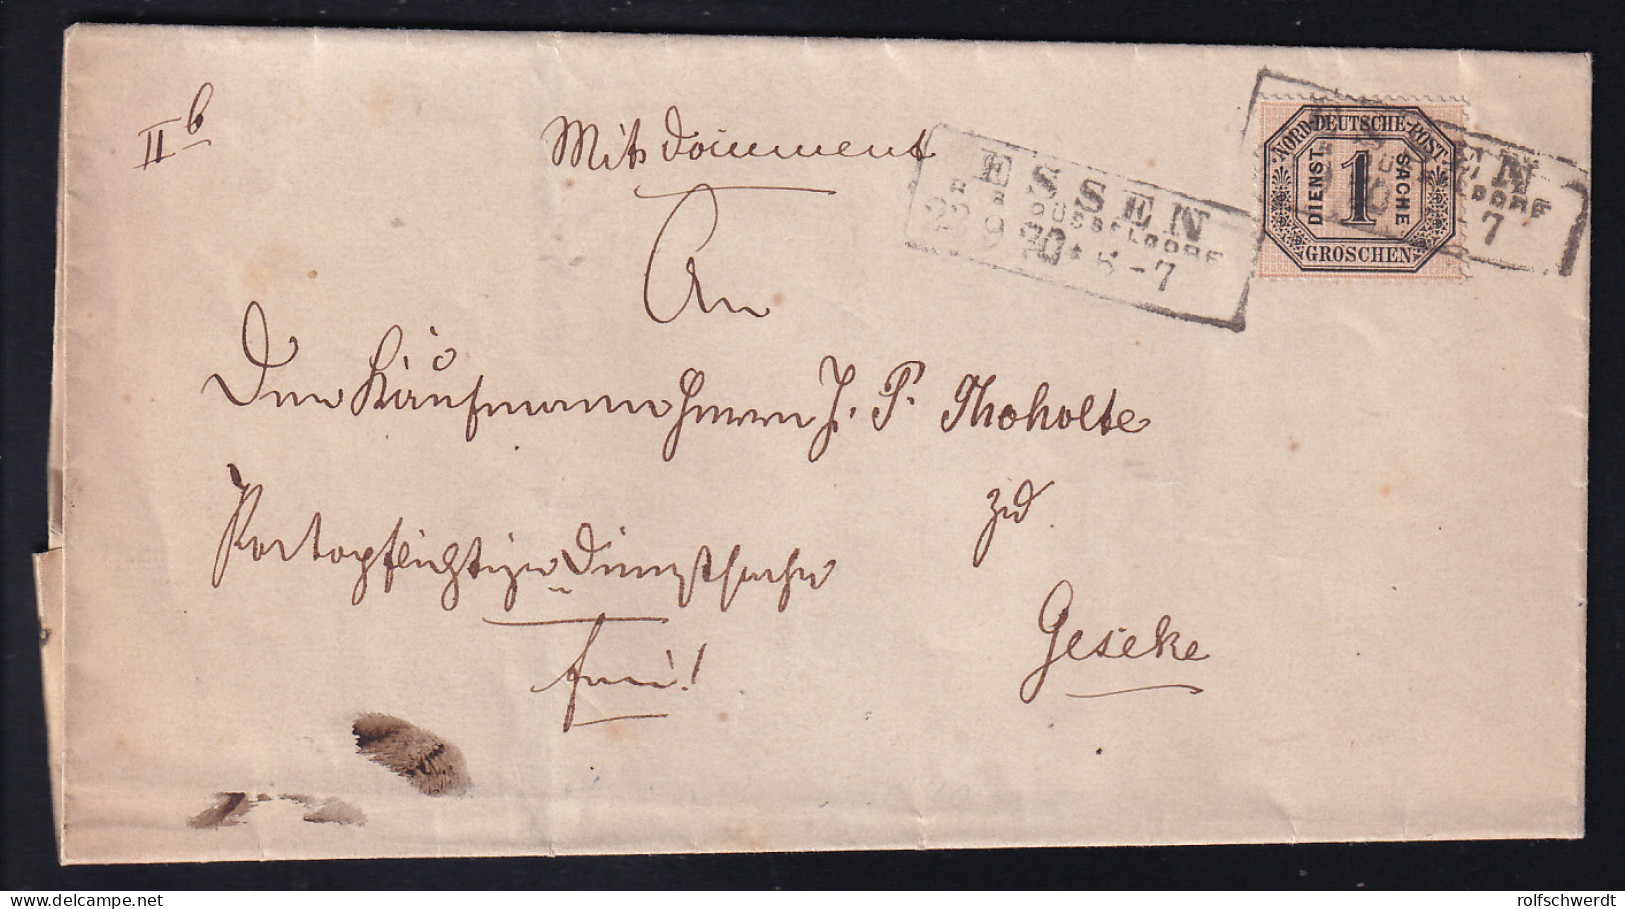 II b
Mit Document
ESSEN
R.B. DÜSSELDORF
23 9 70 * 6-7
NORD-DEUTSCHE-POST
DIENST SACHE
1
GROSCHEN
An
Den Kaufmann Herrn J. P. Thoholte
zu
Portopflichtige Dienstsache
Geseke
frei!
delcampe.net
rolfschwerdt